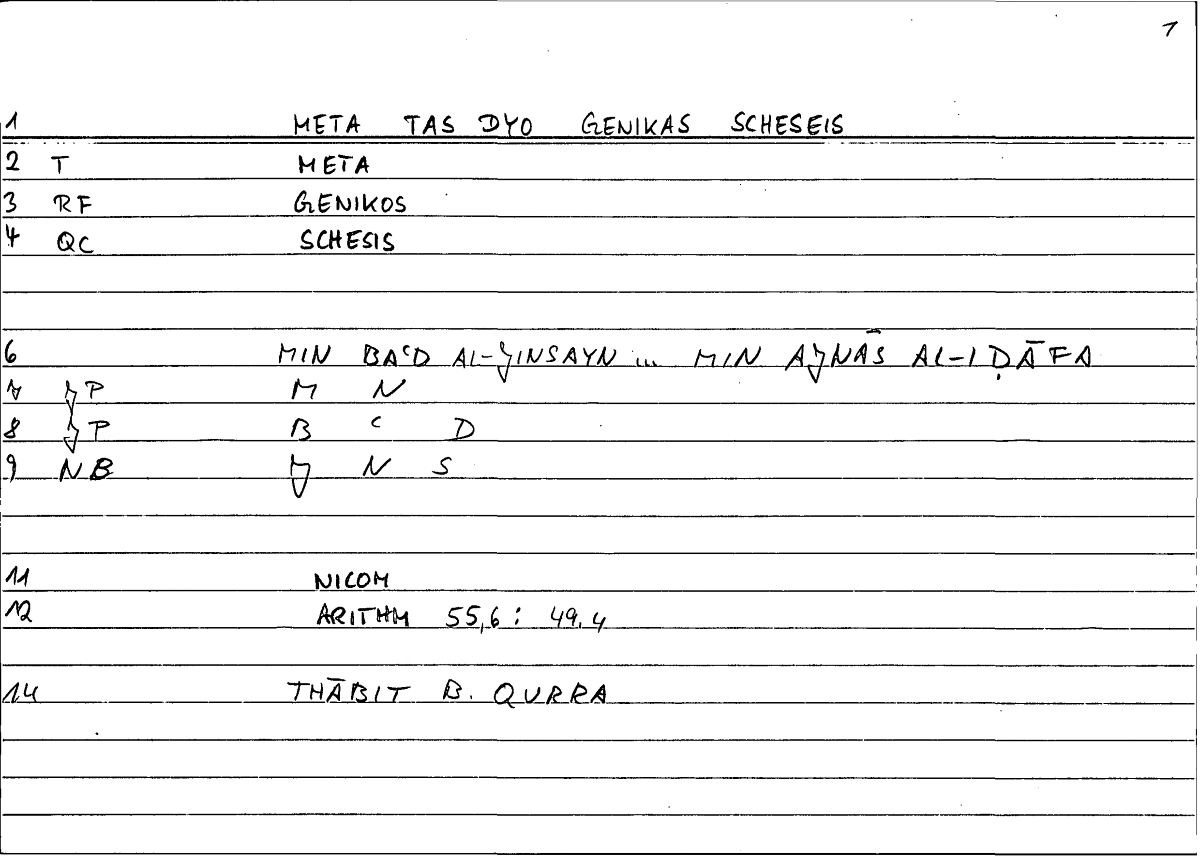 1
1 META TAS DYO GENIKAS SCHESEIS
2 T META
3 RF GENIKOS
4 QC SCHESIS
6 MIN BAʿD AL-JINSAYN ... MIN AJNĀS AL-IḌĀFA
7 JP M N
8 JP B ʿ D
9 NB J N S
11 NICOM
12 ARITHM 55,6 : 49.4
14 THĀBIT B. QURRA